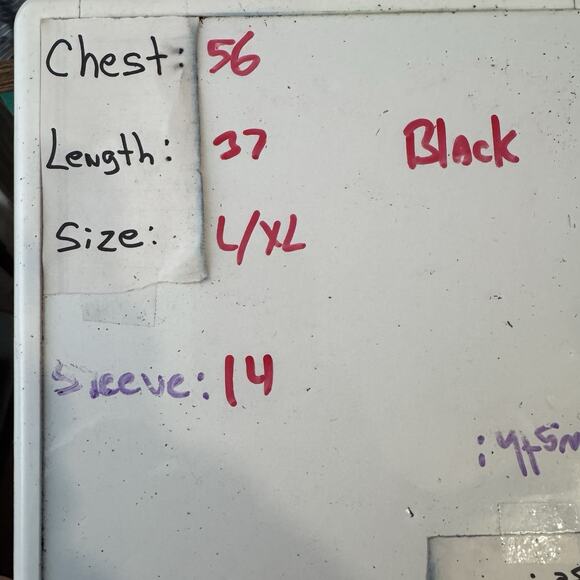 Chest: 56
Length: 37 Black
Size: L/XL
Sleeve: 14